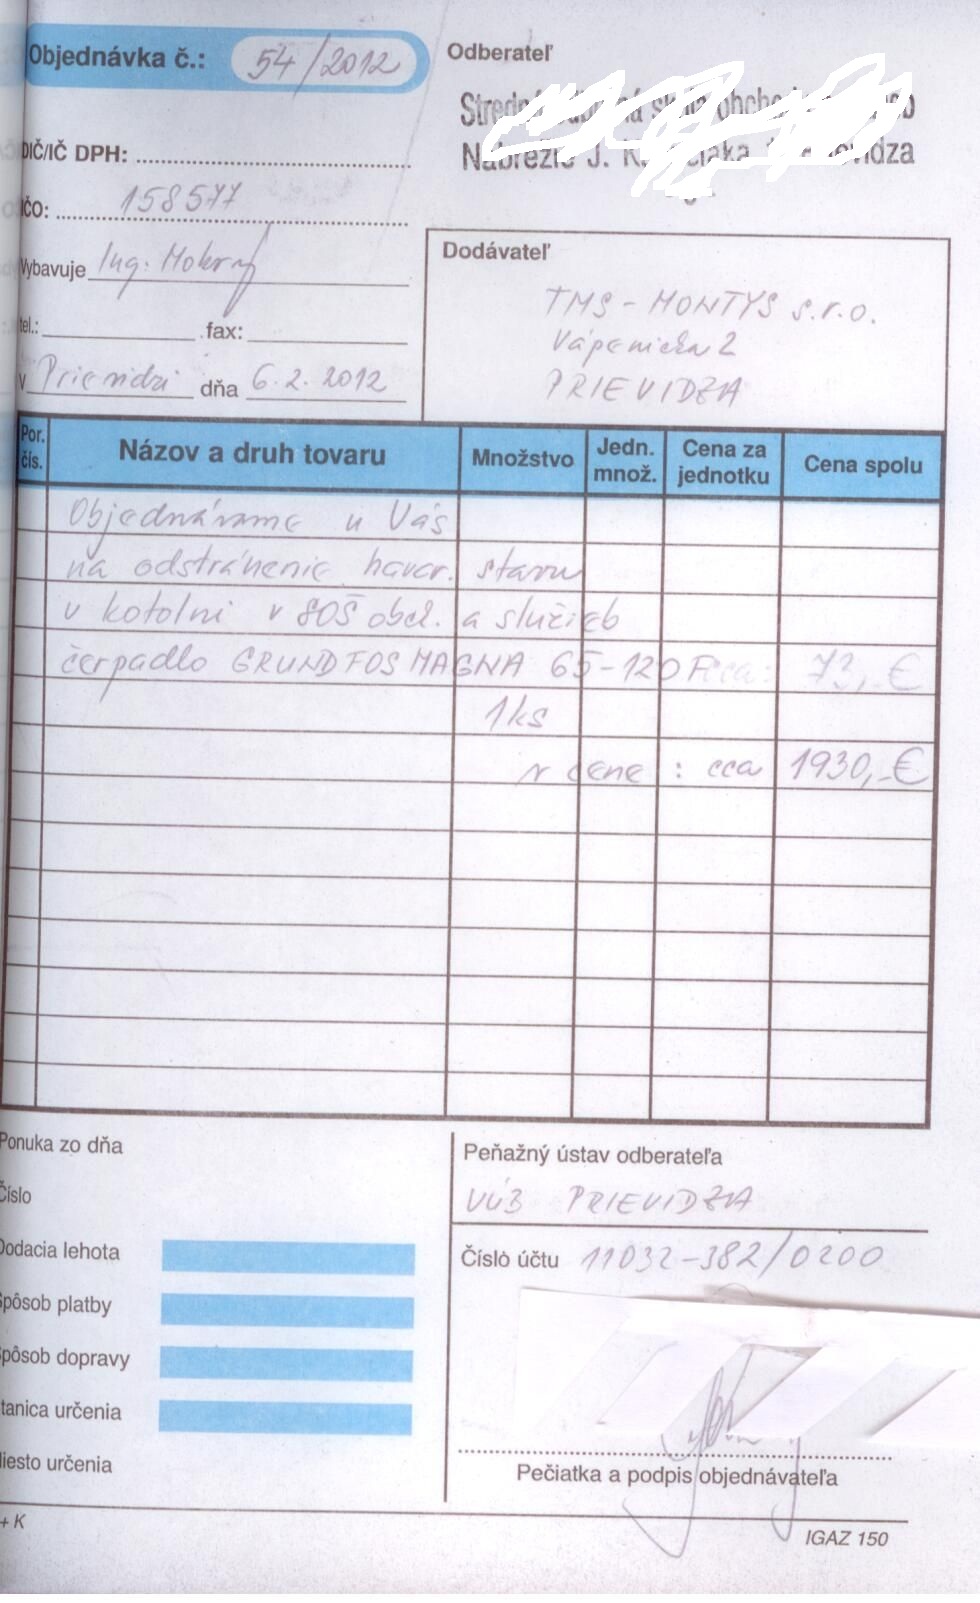 Objednávka č.: 54/2012
Odberateľ
Nábrežie J.
DIČ/IČ DPH:
IČO: 158577
Vybavuje Ing. Mokrý
Dodávateľ
TMS - MONTYS s.r.o.
Vápenická 2
PRIEVIDZA
tel.: fax:
V Prievidzi dňa 6.2.2012
Por. čís. Názov a druh tovaru Množstvo Jedn. množ. Cena za jednotku Cena spolu
Objednávame u Vás
na odstránenie havar. stavu
v kotolni v SOŠ obch. a služieb
čerpadlo GRUNDFOS MAGNA 65-120F cca: 73,-€
1ks
v cene : cca 1930,-€
Ponuka zo dňa
Číslo
Dodacia lehota
Spôsob platby
Spôsob dopravy
Stanica určenia
Miesto určenia
Peňažný ústav odberateľa
VÚB PRIEVIDZA
Číslo účtu 11032-382/0200
Pečiatka a podpis objednávateľa
+ K
IGAZ 150